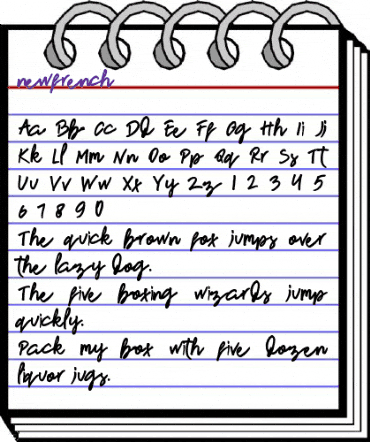 newfrench
Aa Bb Cc Dd Ee Ff Gg Hh Ii Jj
Kk Ll Mm Nn Oo Pp Qq Rr Ss Tt
Uu Vv Ww Xx Yy Zz 1 2 3 4 5
6 7 8 9 0
The quick brown fox jumps over
the lazy dog.
The five boxing wizards jump
quickly.
Pack my box with five dozen
liquor jugs.